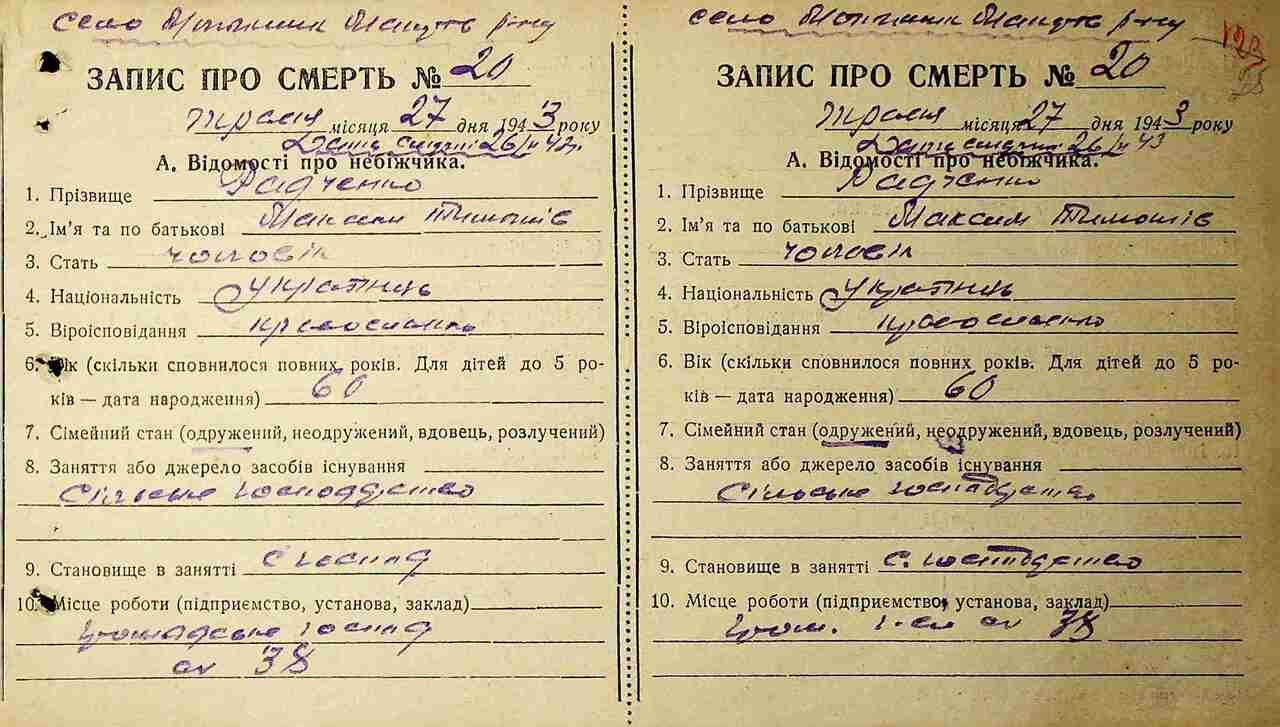 село
ЗАПИС ПРО СМЕРТЬ № 20
травня місяця 27 дня 1943 року
Дата смерті 26/
А. Відомості про небіжчика.
1. Прізвище Радченко
2. Ім'я та по батькові Максим Тимошів
3. Стать чоловік
4. Національність українець
5. Віроісповідання православно
6. Вік (скільки сповнилося повних років. Для дітей до 5 ро-
ків — дата народження) 60
7. Сімейний стан (одружений, неодружений, вдовець, розлучений)
8. Заняття або джерело засобів існування
Сільське господарство
9. Становище в занятті с господ
10. Місце роботи (підприємство, установа, заклад)
Громадське господ
38
село
123
ЗАПИС ПРО СМЕРТЬ № 20
травня місяця 27 дня 1943 року
Дата смерті 26/ 43
А. Відомості про небіжчика.
1. Прізвище Радченко
2. Ім'я та по батькові Максим Тимошів
3. Стать чоловік
4. Національність українець
5. Віроісповідання православно
6. Вік (скільки сповнилося повних років. Для дітей до 5 ро-
ків — дата народження) 60
7. Сімейний стан (одружений, неодружений, вдовець, розлучений)
8. Заняття або джерело засобів існування
Сільське господарство
9. Становище в занятті с. господарство
10. Місце роботи (підприємство, установа, заклад)
Гром. 38